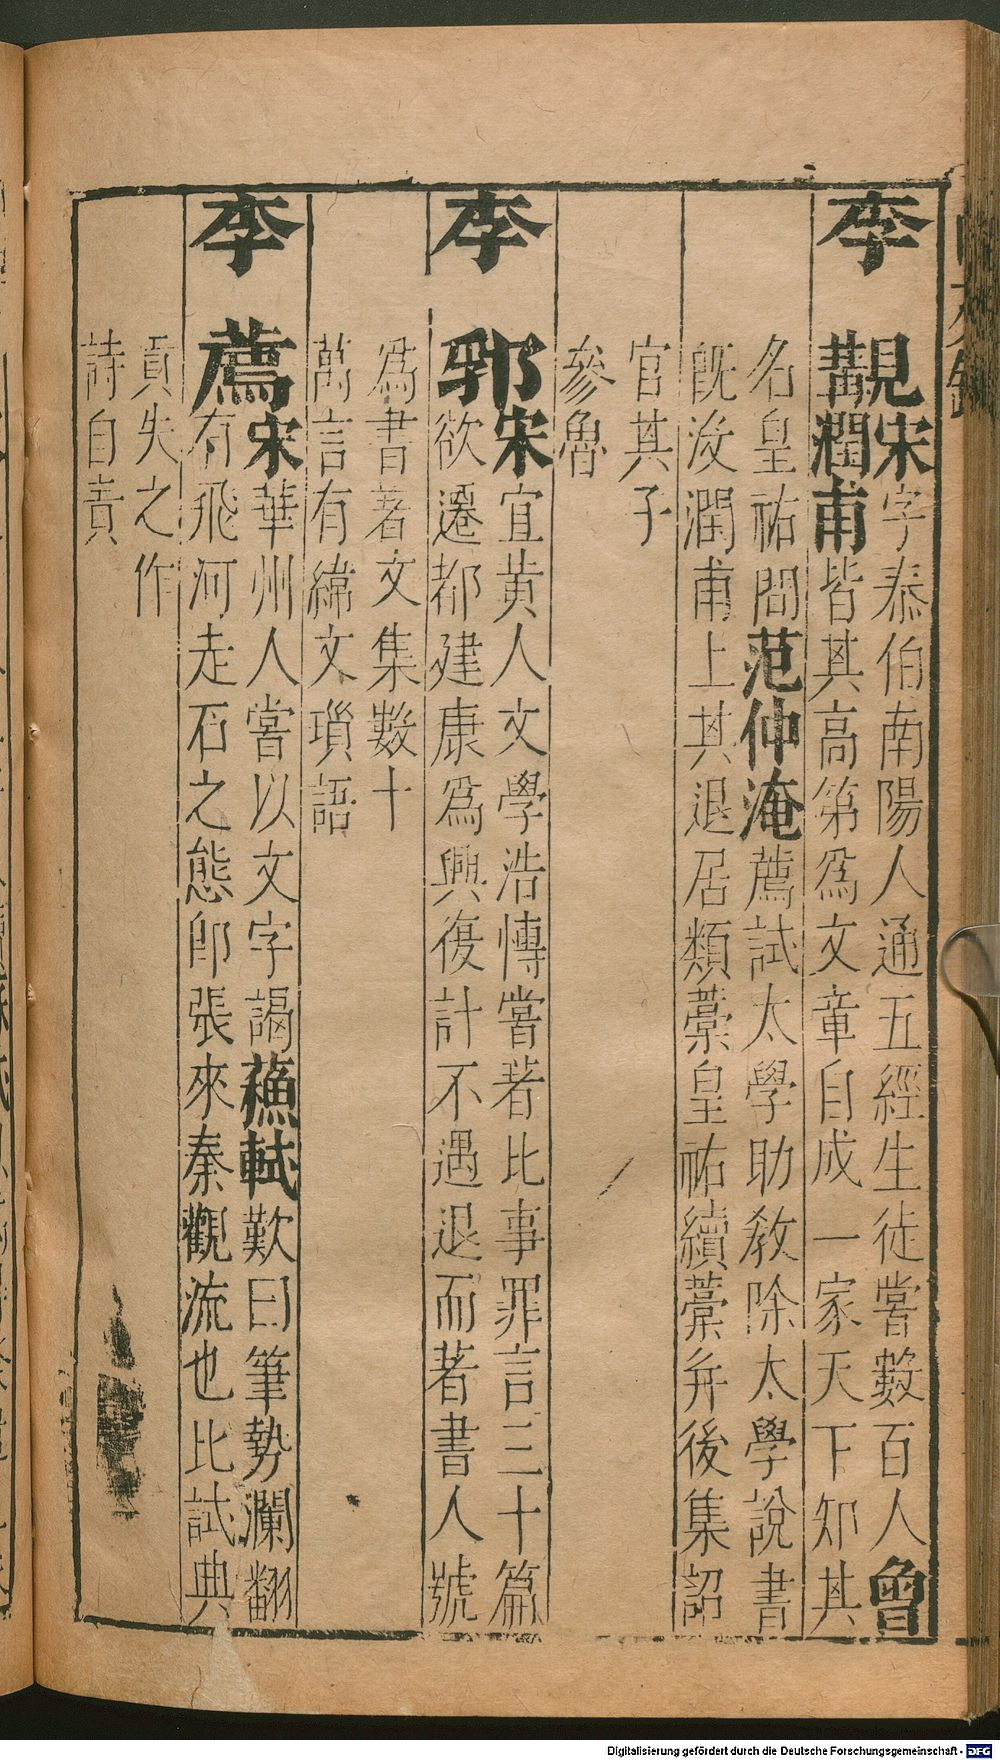 李
覯
宋字泰伯南陽人通五經生徒嘗數百人曾
潤甫皆其高第爲文章自成一家天下知其
名皇祐間范仲淹薦試太學助教除太學說書
既没潤甫上其退居類藁皇祐續藁并後集詔
官其子
參魯
李郛
宋宜黃人文學浩博嘗著比事罪言三十篇
欲遷都建康爲興復計不遇退而著書人號
爲書著文集數十
萬言有緯文瑣語
李薦
宋華州人嘗以文字謁蘇軾歎曰筆勢瀾翻
有飛河走石之態卽張來秦觀流也比試典
貢失之作
詩自責
Digitalisierung gefördert durch die Deutsche Forschungsgemeinschaft - DFG